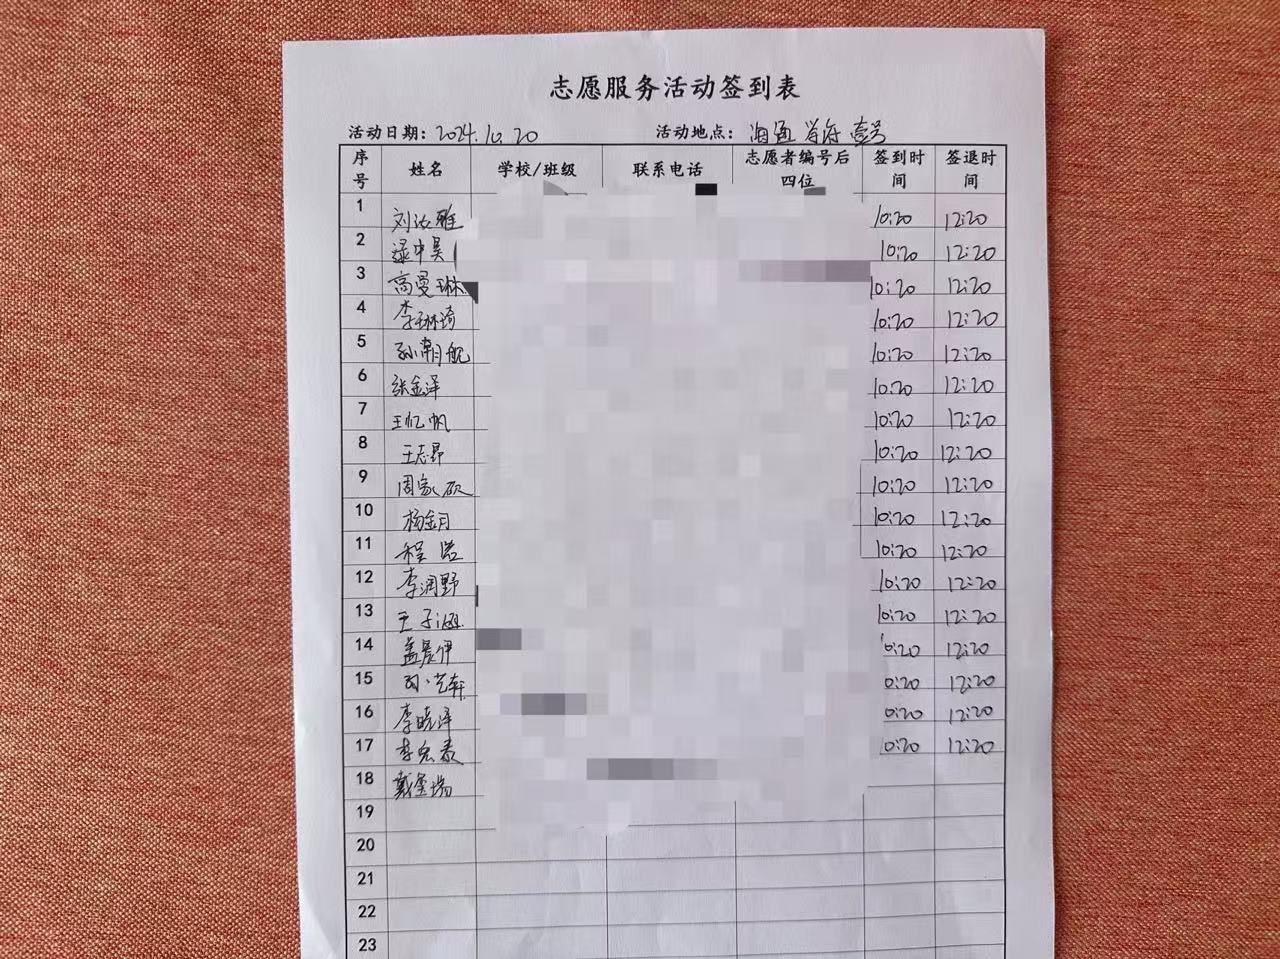 志愿服务活动签到表
活动日期：2024.10.20 活动地点：海通学府壹号
序号 姓名 学校/班级 联系电话 志愿者编号后四位 签到时间 签退时间
1 刘 雅 10:20 12:20
2 10:20 12:20
3 高曼琳 10:20 12:20
4 李琳琦 10:20 12:20
5 孙朝舰 10:20 12:20
6 张金泽 10:20 12:20
7 王忆帆 10:20 12:20
8 王志昂 10:20 12:20
9 周家硕 10:20 12:20
10 杨金月 10:20 12:20
11 程 10:20 12:20
12 李润野 10:20 12:20
13 王子涵 10:20 12:20
14 盖晨伊 10:20 12:20
15 艺轩 0:20 12:20
16 李晓泽 0:20 12:20
17 李宏泰 0:20 12:20
18 戴金瑞
19
20
21
22
23